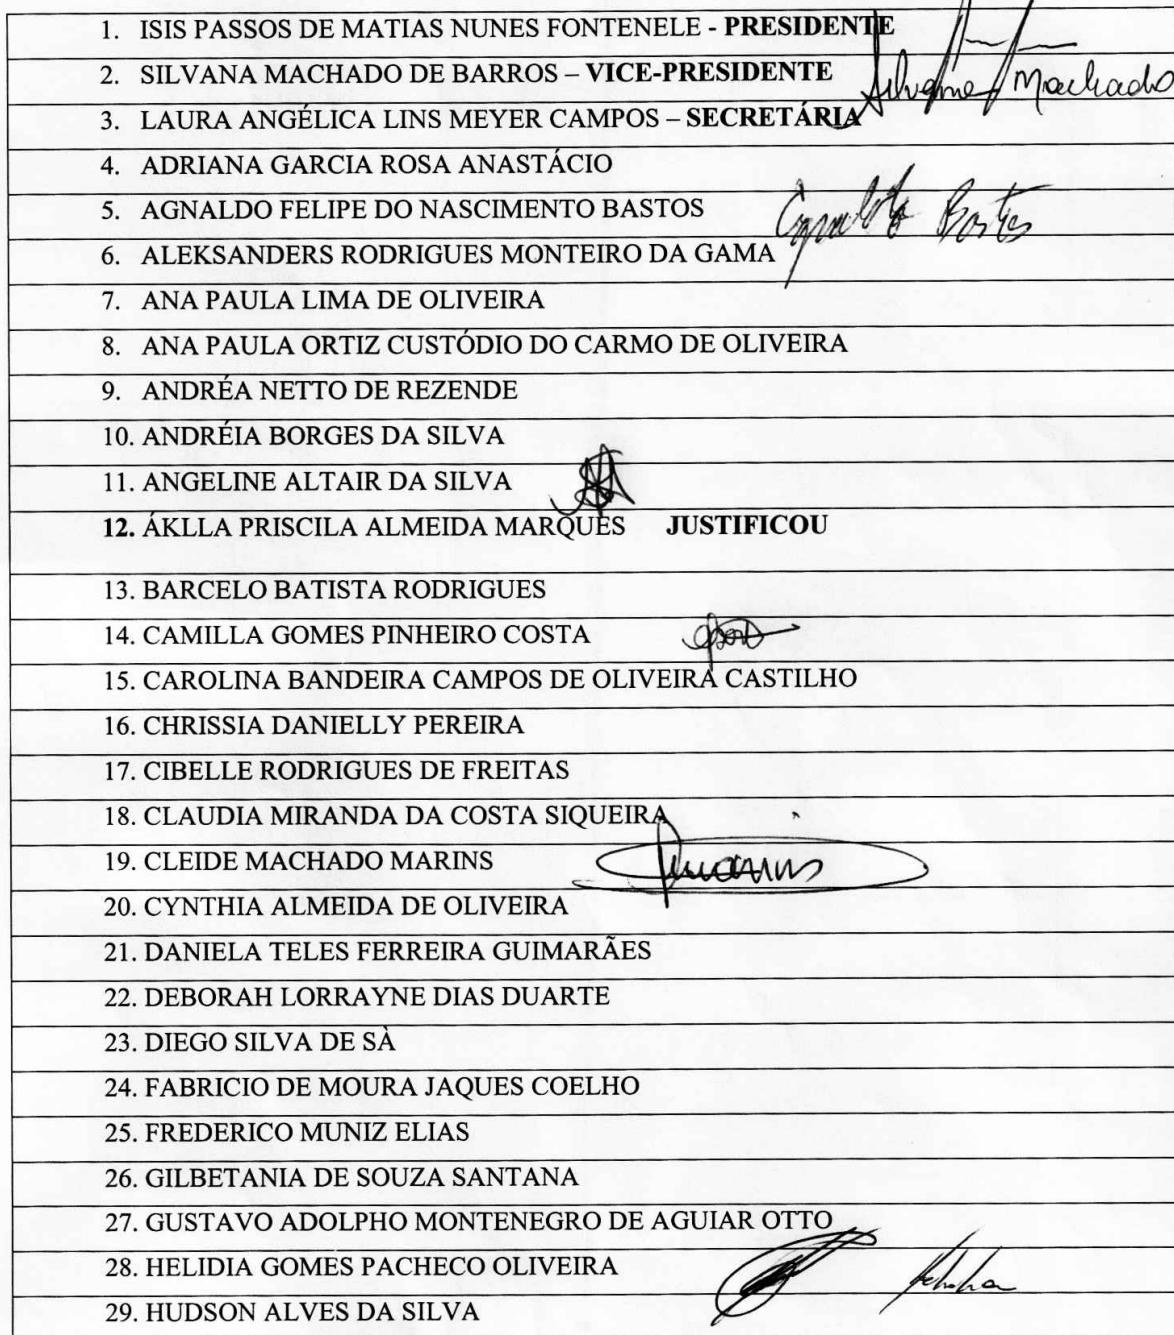 1. ISIS PASSOS DE MATIAS NUNES FONTENELE - PRESIDENTE
2. SILVANA MACHADO DE BARROS – VICE-PRESIDENTE Silvana Machado
3. LAURA ANGÉLICA LINS MEYER CAMPOS – SECRETÁRIA
4. ADRIANA GARCIA ROSA ANASTÁCIO
5. AGNALDO FELIPE DO NASCIMENTO BASTOS Agnaldo Bastos
6. ALEKSANDERS RODRIGUES MONTEIRO DA GAMA
7. ANA PAULA LIMA DE OLIVEIRA
8. ANA PAULA ORTIZ CUSTÓDIO DO CARMO DE OLIVEIRA
9. ANDRÉA NETTO DE REZENDE
10. ANDRÉIA BORGES DA SILVA
11. ANGELINE ALTAIR DA SILVA
12. ÁKLLA PRISCILA ALMEIDA MARQUES JUSTIFICOU
13. BARCELO BATISTA RODRIGUES
14. CAMILLA GOMES PINHEIRO COSTA
15. CAROLINA BANDEIRA CAMPOS DE OLIVEIRA CASTILHO
16. CHRISSIA DANIELLY PEREIRA
17. CIBELLE RODRIGUES DE FREITAS
18. CLAUDIA MIRANDA DA COSTA SIQUEIRA
19. CLEIDE MACHADO MARINS
20. CYNTHIA ALMEIDA DE OLIVEIRA
21. DANIELA TELES FERREIRA GUIMARÃES
22. DEBORAH LORRAYNE DIAS DUARTE
23. DIEGO SILVA DE SÀ
24. FABRICIO DE MOURA JAQUES COELHO
25. FREDERICO MUNIZ ELIAS
26. GILBETANIA DE SOUZA SANTANA
27. GUSTAVO ADOLPHO MONTENEGRO DE AGUIAR OTTO
28. HELIDIA GOMES PACHECO OLIVEIRA
29. HUDSON ALVES DA SILVA